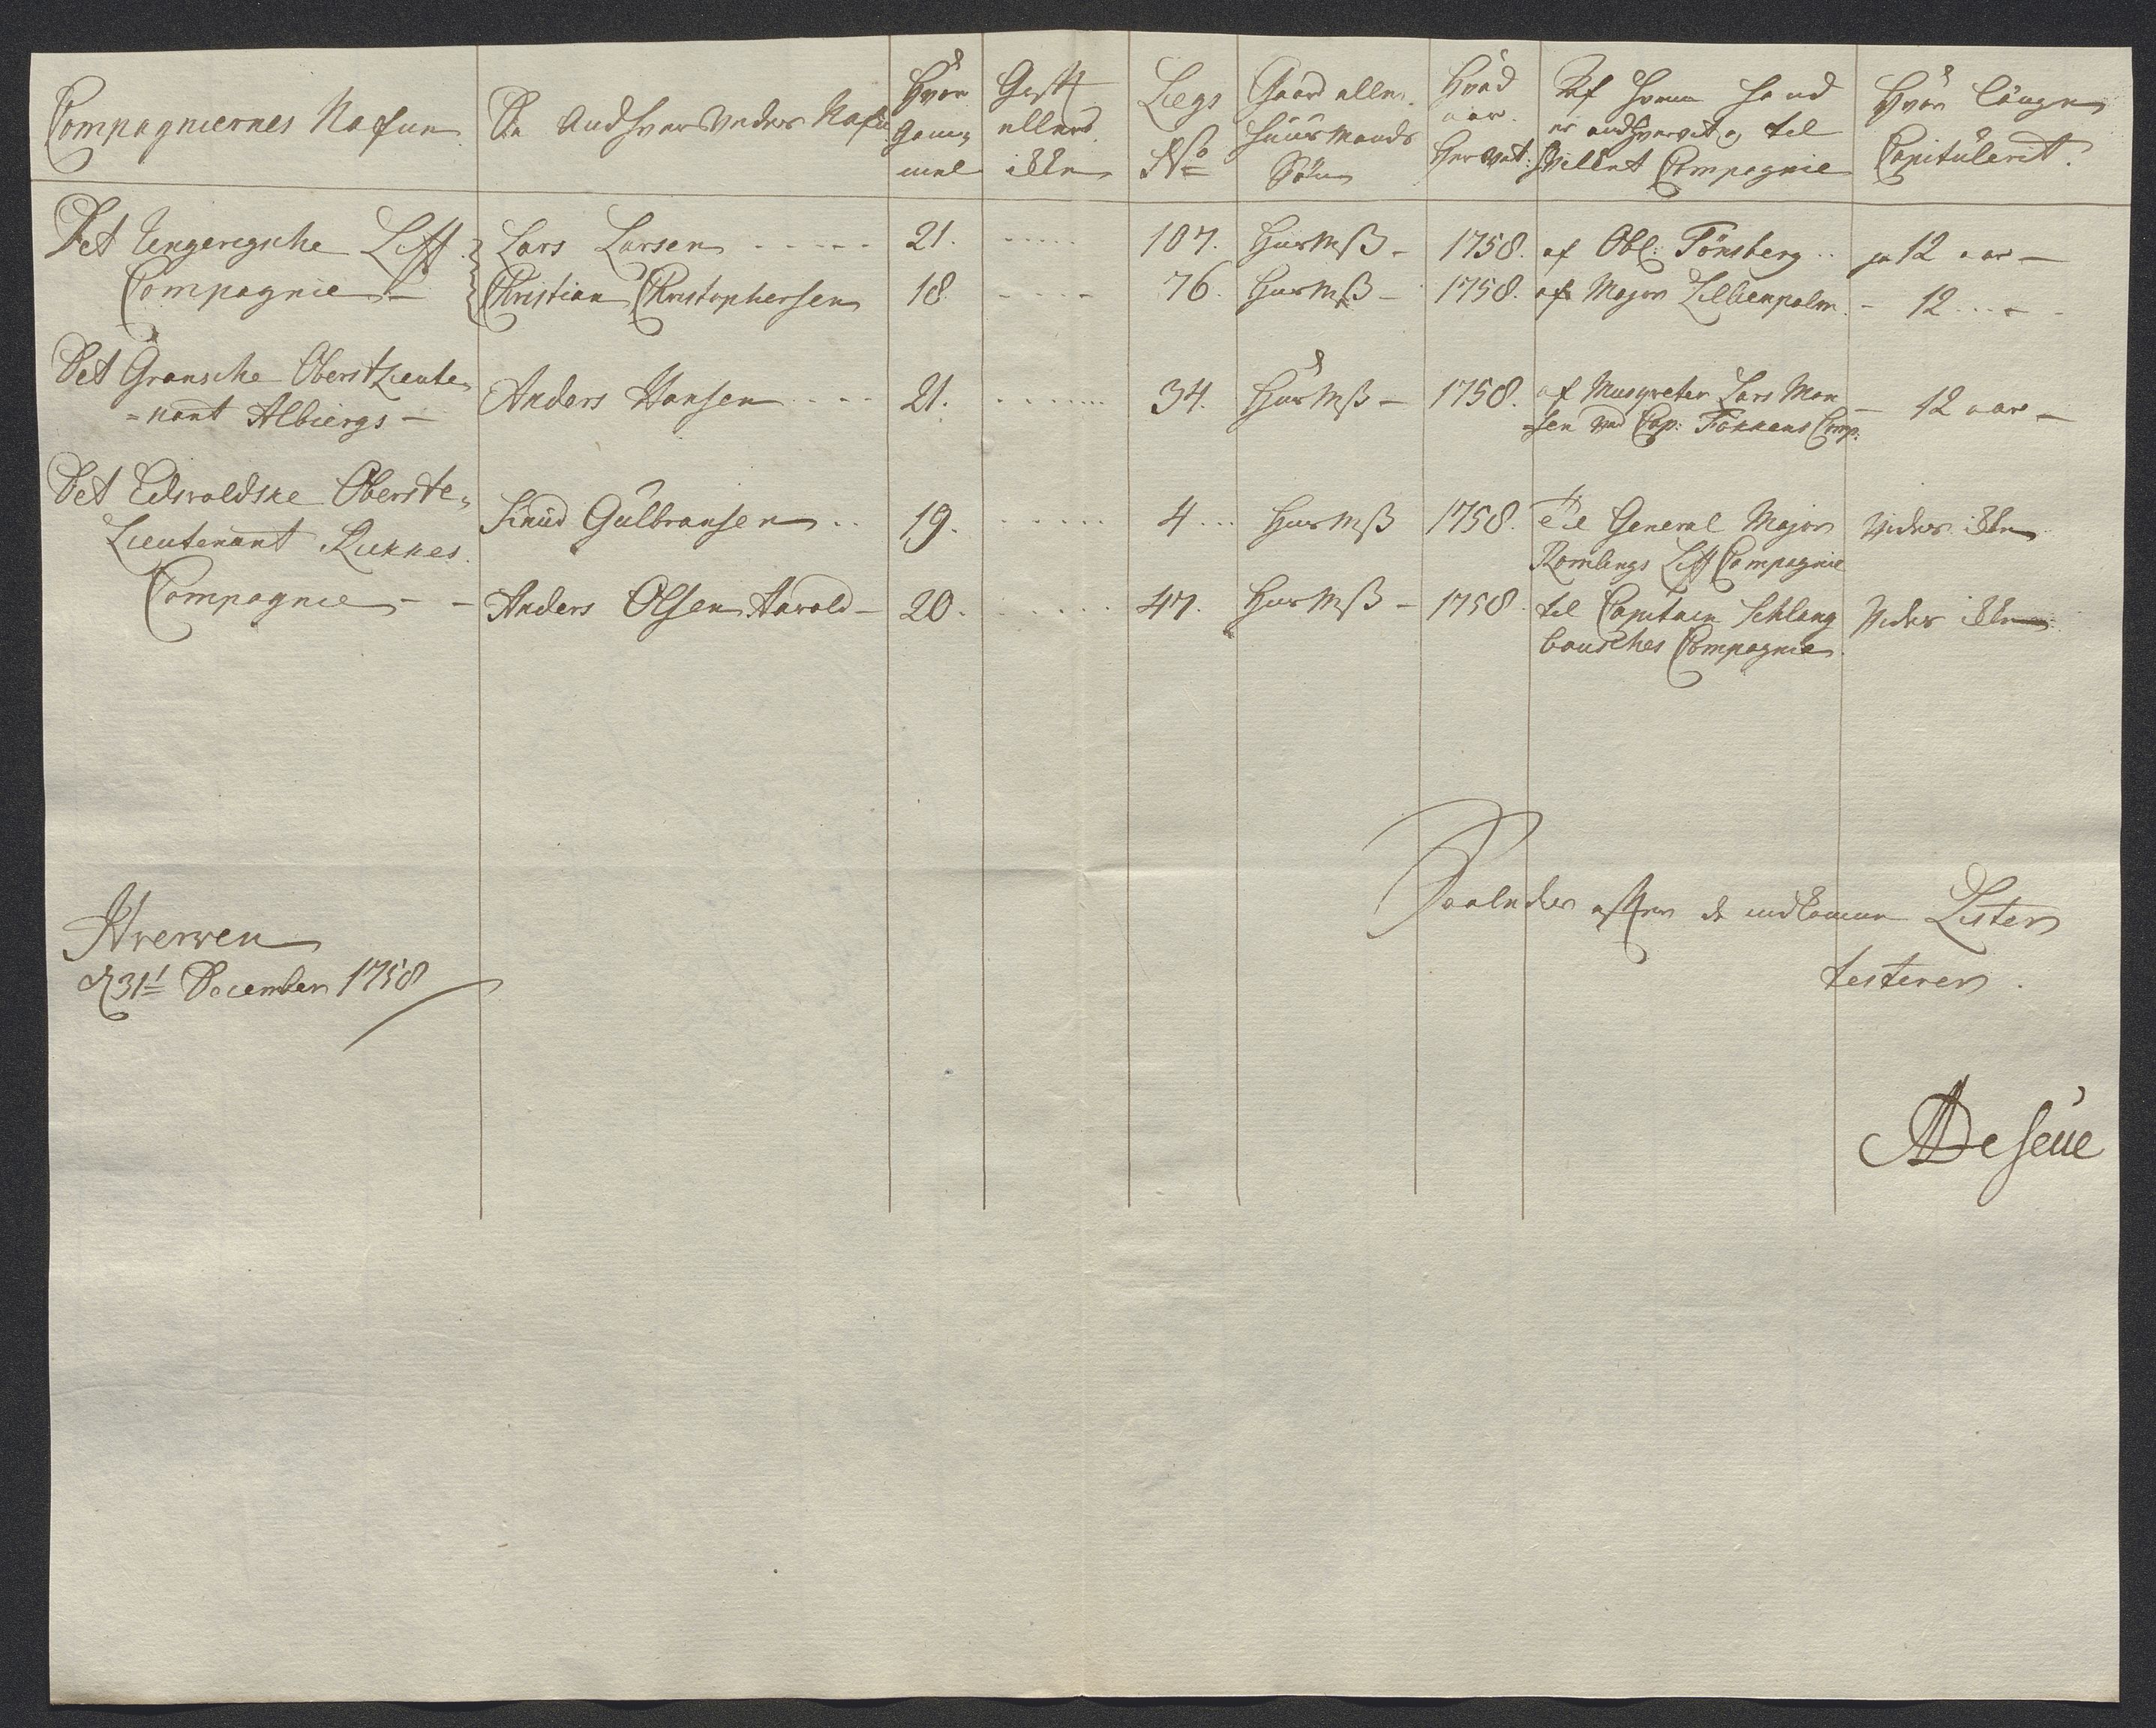 Compagniernes Nafne
De Andhververedes Nafn
Hvor
Gam„
mel
Gift
eller
ikke
Legs
No
Gaard eller
Huusmands
Søn
Hvad
aar
Hervet:
Af hvem hand
er andhvervet og til
hvilket Compagnie
Hvor længe
Capitulerit.
Det Ungeregsche Liff
Compagnie
Lars Larsen 21. 107. HusMß 1758. af Obl: Tönsberg .. pa 12 aar
Christian Christophersen 18 76. HusMß 1758. af Major Lillienpalm. - 12
Det Gransche Oberstlieute„
=nant Albiergs
Anders Hansen 21. 34. HusMß 1758. af Musqveter Lars Man
=sen ved Cap: Fokkens Comp: 12 aar
Det Edsvoldske Oberste„
Lieutenant Lukkes
Compagnie
Knud Gulbransen .. 19. 4 HusMß 1758. til General Major
Romlings Liff Compagnie
Vides ikke
Anders Olsen Aavold 20. 47. HusMß 1758. til Capitain Schlang
bousches Compagnie
Vides ikke
Saaledes efter de indkomne Lister
testerer.
Hverven
d 31t December 1758
A DeSeue